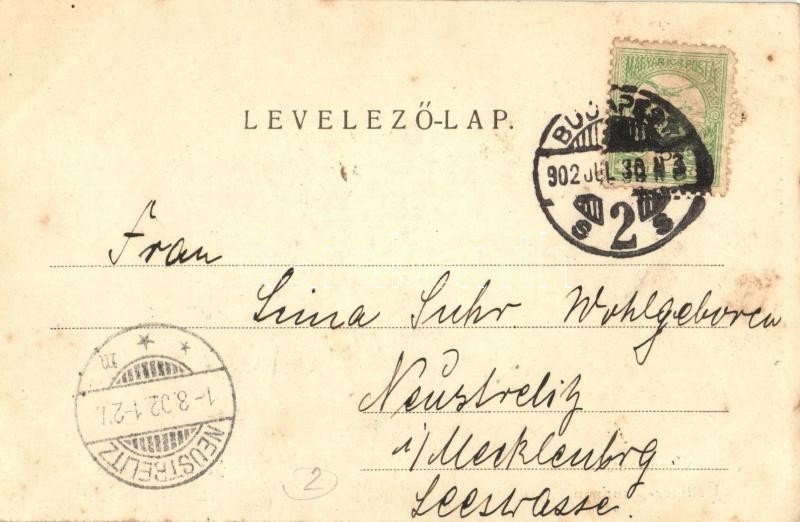 LEVELEZŐ-LAP.
MAGYAR KIR. POSTA
BUDAPEST
902 JUL 30 N 3
S 2 S
Frau
Lina Suhr Wohlgeboren
Neustrelitz
i/Mecklenbrg.
Seestrasse.
1-8.02.1-2N.
NEUSTRELITZ
2